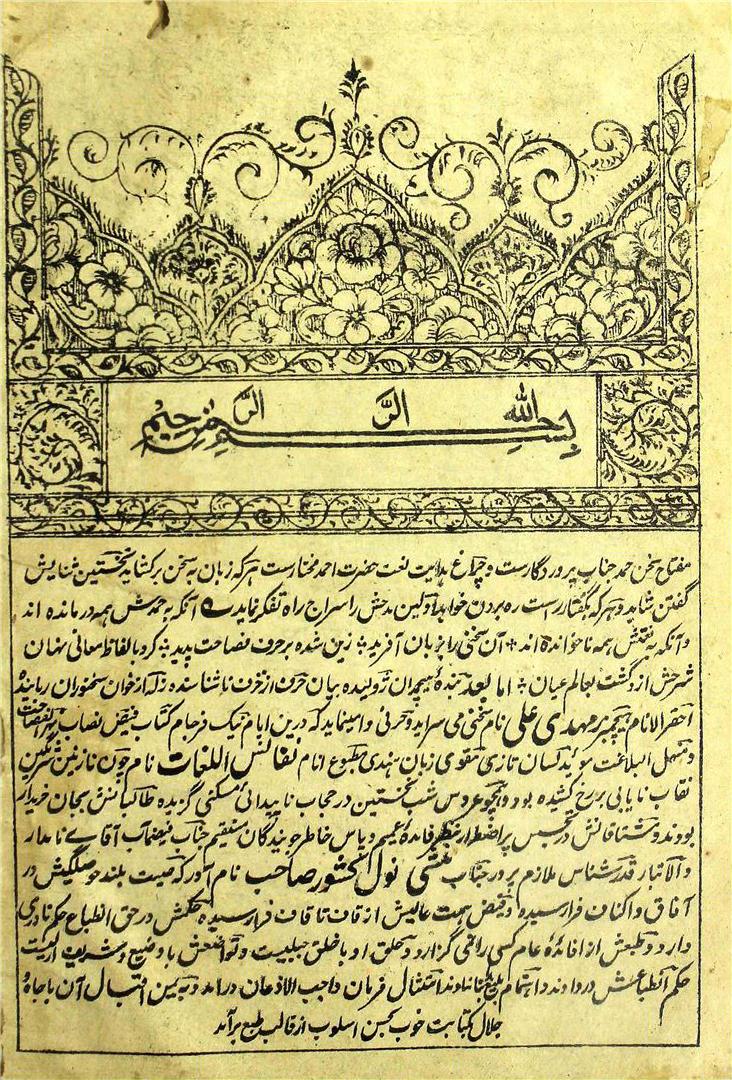 بسم الله الرحمن الرحیم
مفتاح سخن حمد جناب پروردگارست و چراغ هدایت نعت حضرت احمد مختارست هر که زبان به سخن برکشاید نخستین ثنایش
گفتن شاید و هر که بگفتار است ره بردن خواهد اولین مدحش را سراج راه تفکر نماید آنکه به حمدش همه در مانده اند
و آنکه به نعتش همه ناخوانده اند آن سخنی را بزبان آفرید زین شده بر حرف فصاحت پدید کرد بالفاظ معانی نهان
شرحش ازو گشت بعالم عیان اما بعد بنده هیچمدان ژولیده بیان حرف از حرف ناشناسنده زله از خوان سخنوران رباینده
احقر الانام میر مهدی علی نام سخنی می سراید و حرفی وا مینماید که درین ایام نیک فرجام کتاب فیض نصاب
و منهل البلاغت موئد لسان تازی مقوی زبان هندی مطبوع انام نفائس اللغات نام چون نازنین شرمگین
نقاب نایابی برخ کشیده بود و همچو عروس شب نخستین در حجاب ناپیدائی مسکنی گزیده طالبانش بجان خریدار
بودند و مشتاقانش در تجسس پر اضطرار بنظر فائده عمیم و پاس خاطر جویندگان مستقیم جناب فیضمآب آقاے نامدار
والا تبار قدرشناس ملازم پرور جناب منشی نول کشور صاحب نام آور که صیت بلند حوصلگیش در
آفاق و اکناف فرا رسیده و فیض همت عالیش از قاف تا قاف فرا رسیده حکمش در حق انطباع حکم نادری
دارد و طبعش از افاده عام کسی را نمی گذارد و خلق او با خلق جبلیست و تواضعش با وضیع و شریف
حکم انطباعش در دادند و اهتمام بامتثال فرمان واجب الاذعان درآمد و بیمن اقبال آن با جاه و
جلال بکتابت خوب بحسن اسلوب از قالب طبع برآمد